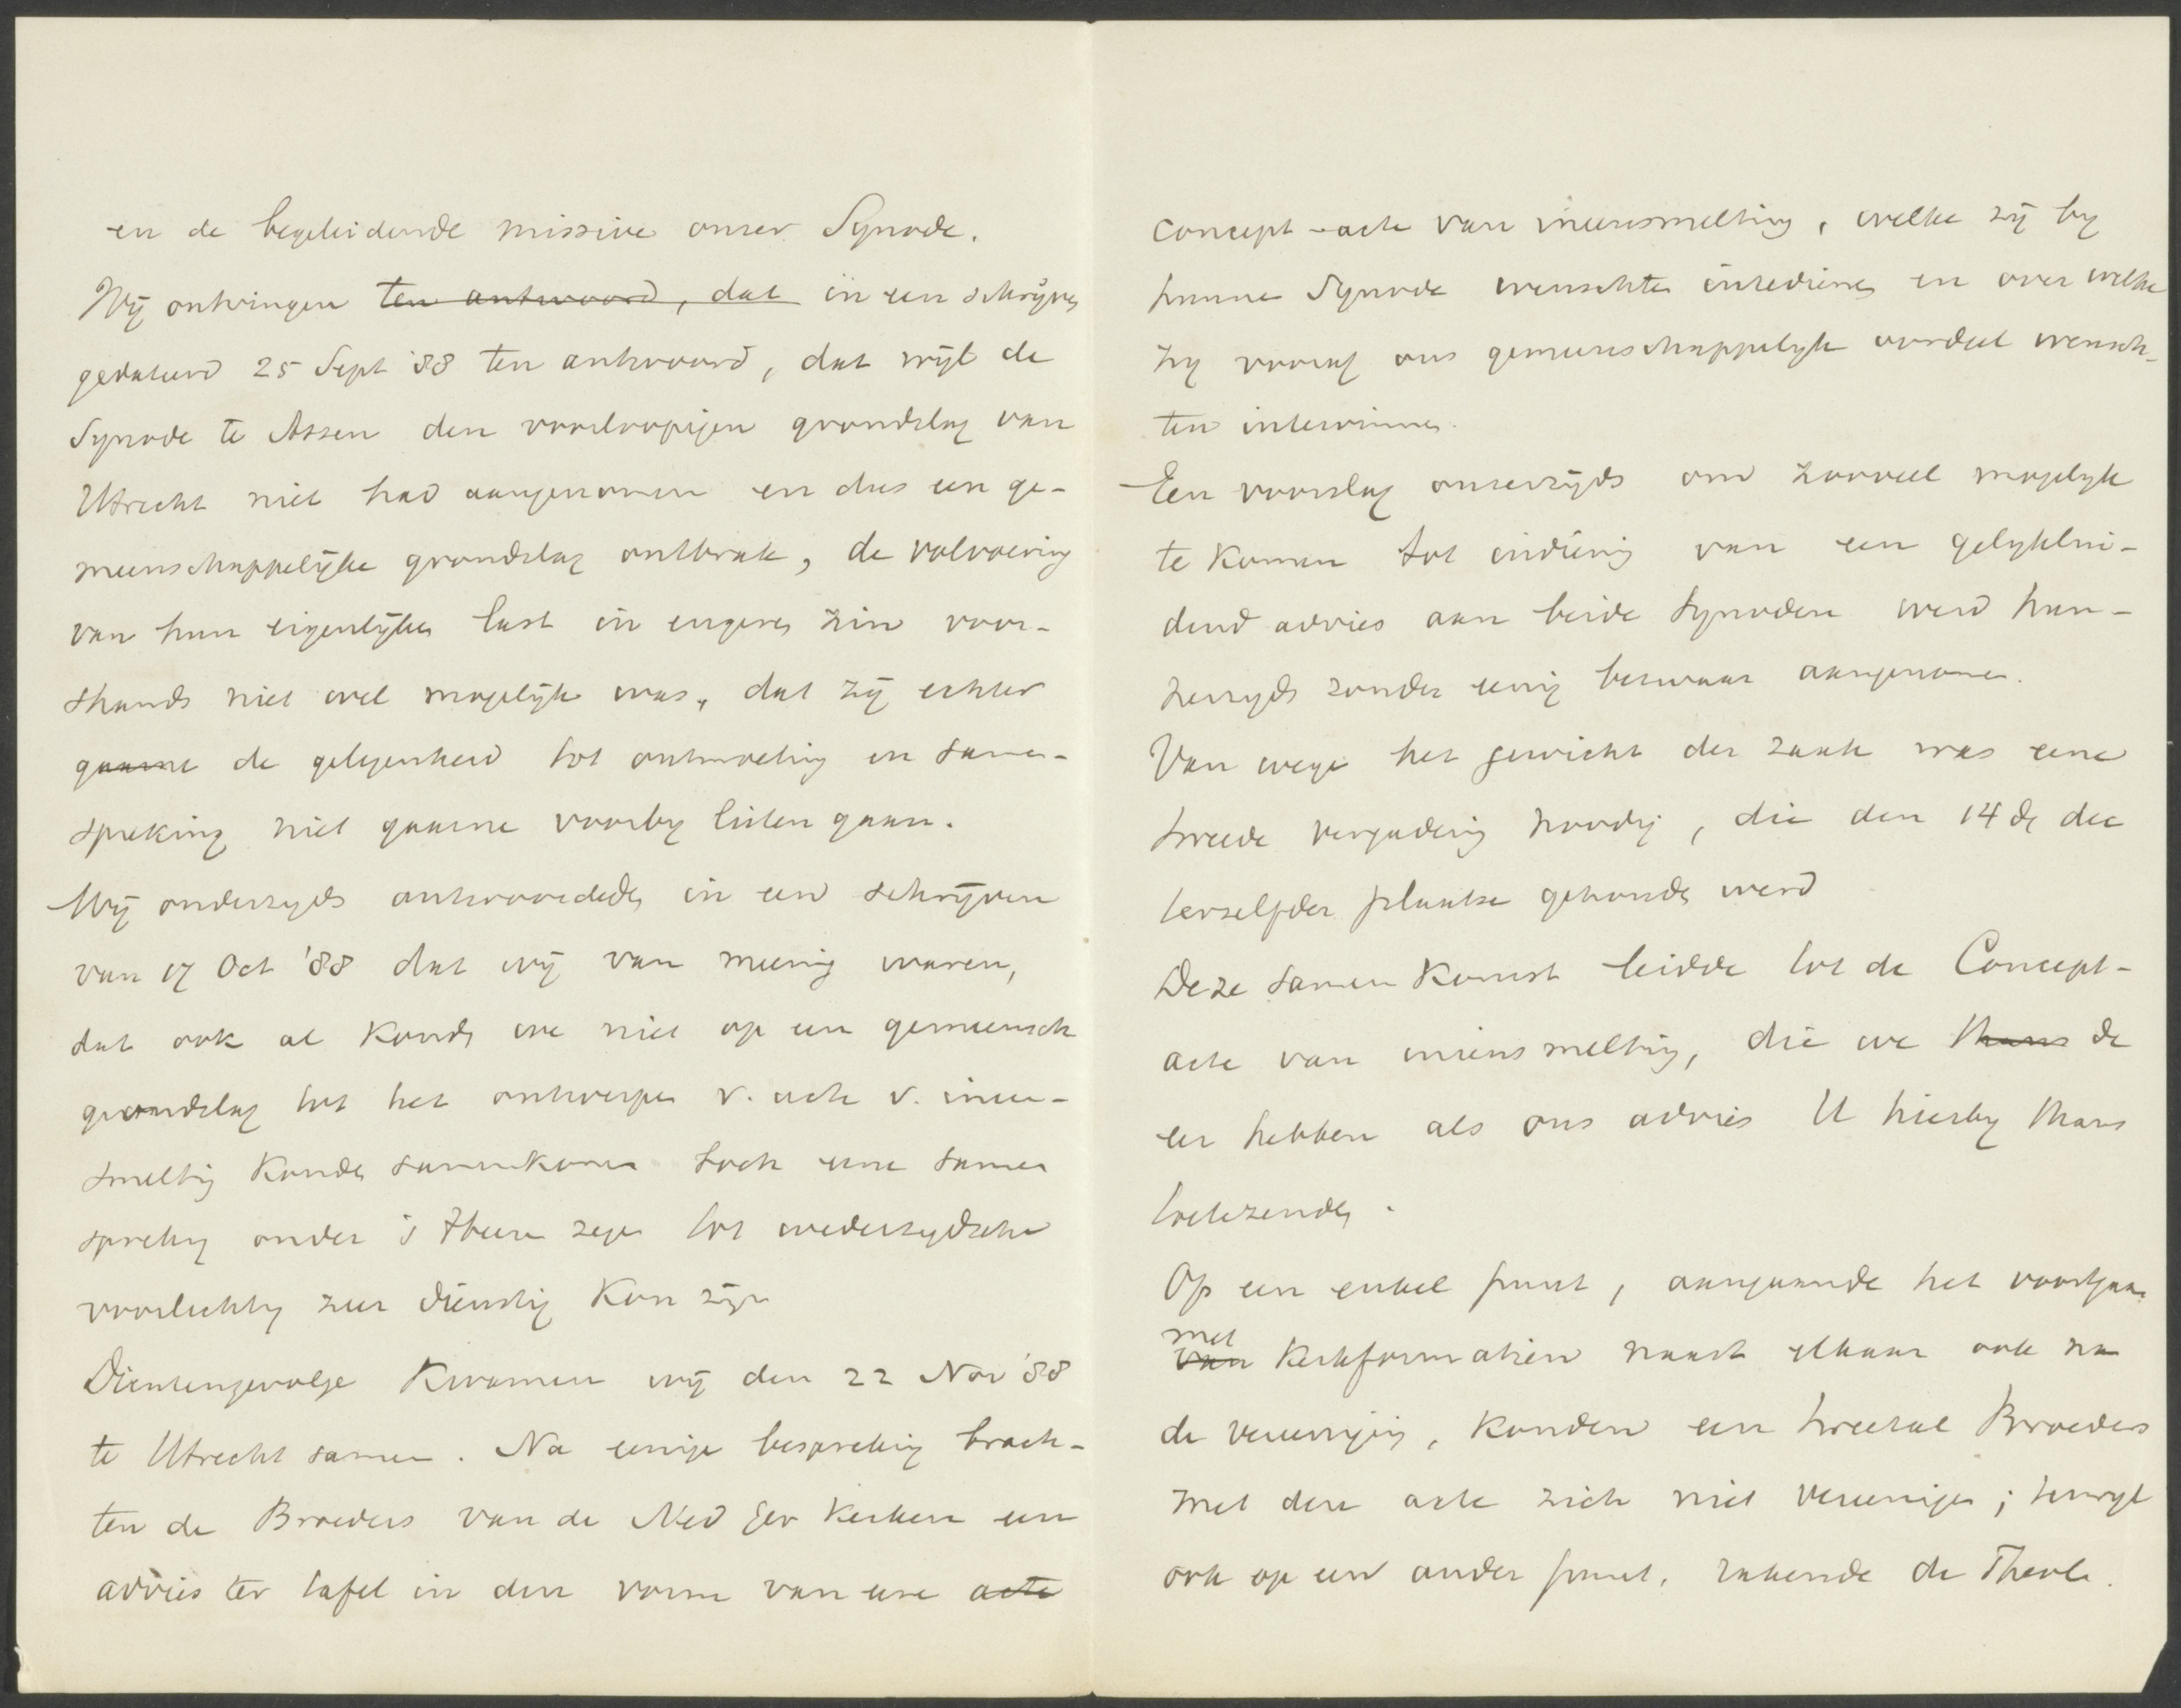 en de begeleidende missive onzer Synode.
Wij ontvingen ten antwoord, dat in een schrijven
gedateerd 25 Sept '88 ten antwoord, dat wijl de
Synode te Assen den voorloopigen grondslag van
Utrecht niet had aangenomen en dus een ge-
meenschappelijke grondslag ontbrak, de volvoering
van hun eigenlijken last in engeren zin voor-
shands niet wel mogelijk was, dat zij echter
gaarne de gelegenheid tot ontmoeting en samen-
spreking niet gaarne voorby lieten gaan.
Wij onderzyds antwoordden in een schrijven
van 17 Oct '88 dat wij van meening waren,
dat ook al konden we niet op een gemeensch
grondslag tot het ontwerpen v. acte v. ineen-
smelting konden samenkomen toch eene samen
spreking onder 's Heeren zegen tot wederzydsche
voorlichting zeer dienstig kon zijn
Dientengevolge kwamen wij den 22 Nov '88
te Utrecht samen. Na eenige bespreking brach-
ten de Broeders van de Ned Ger Kerken een
advies ter tafel in den vorm van eene acte
concept-acte van ineensmelting, welke zij by
hunne Synode wenschten intedienen en over welke
zy vooraf ons gemeenschappelyk oordeel wensch-
ten intewinnen.
Een voorslag onzerzijds om zooveel mogelyk
te komen tot indiening van een gelyklui-
dend advies aan beide Synoden werd hun-
zerzyds zonder eenig bezwaar aangenomen.
Van wege het gewicht der zaak was eene
tweede vergadering noodig, die den 14 de dec
terzelfder plaatse gehouden werd
Deze samenkomst leidde tot de Concept-
acte van ineensmelting, die we thans de
eer hebben als ons advies U hierby thans
toetezenden.
Op een enkel punt, aangaande het voortgaan
met
van Kerkformatien naast elkaar ook na
de vereeniging, konden een tweetal Broeders
met deze acte zich niet vereenigen; terwyl
ook op een ander punt, rakende de Theol.